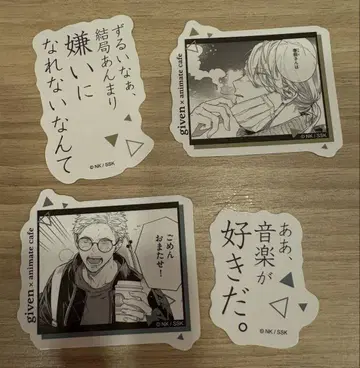 ずるいなぁ、
結局あんまり
嫌いに
なれないなんて
© NK / SSK
given × animate cafe
© NK / SSK
given × animate cafe
ごめん
おまたせ!
© NK / SSK
ああ、
音楽が
好きだ。
© NK / SSK